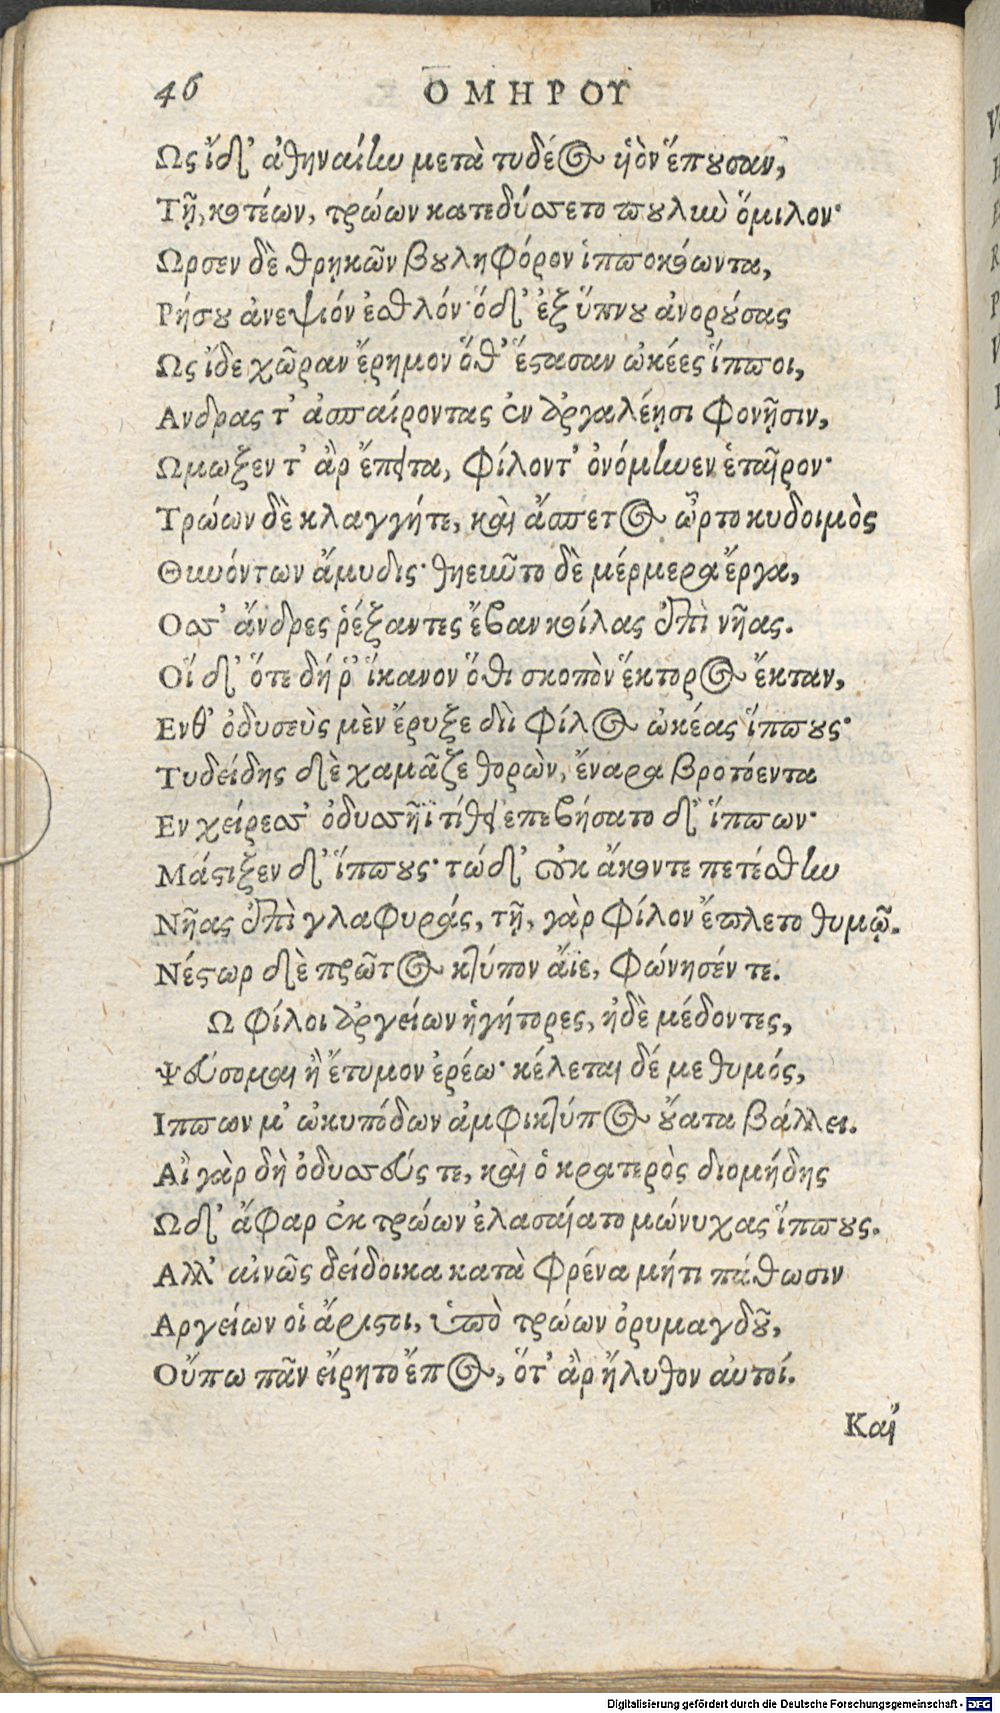 46 ΟΜΗΡΟΥ
Ως ἴδ' ἀθηναίην μετὰ τυδέος υἱὸν ἕπουσαν,
Τῇ, κοτέων, τρώων κατεδύσετο πουλιὺ ὅμιλον·
Ωρσεν δὲ θρῃκῶν βουληφόρον ἱπποκόωντα,
Ρήσου ἀνεψιόν ἐσθλόν· ὅδ' ἐξ ὕπνου ἀνορούσας
Ως ἴδε χῶραν ἔρημον ὅθ' ἕστασαν ὠκέες ἵπποι,
Ανδρας τ' ἀσπαίροντας ἐν ἀργαλέῃσι φονῇσιν,
Ωμωξεν τ' ἂρ ἔπειτα, φίλοντ' ὀνόμηνεν ἑταῖρον·
Τρώων δὲ κλαγγήτε, καὶ ἄσπετος ὦρτο κυδοιμὸς
Θιυόντων ἄμυδις· θηεῦντο δὲ μέρμερα ἔργα,
Οσσ' ἄνδρες ῥέξαντες ἔβαν κοίλας ἐπὶ νῆας.
Οἵ δ' ὅτε δή ῥ' ἵκανον ὅθι σκοπὸν ἕκτορος ἔκταν,
Ενθ' ὀδυσεὺς μὲν ἔρυξε διὶ φίλος ὠκέας ἵππους·
Τυδείδης δὲ χαμᾶζε θορὼν, ἔναρα βροτόεντα
Εν χείρεσσ' ὀδυσσῆϊ τίθει επεβήσατο δ' ἵππων·
Μάστιξεν δ' ἵππους· τώδ' οὐκ ἄκοντε πετέσθην
Νῆας ἐπὶ γλαφυράς, τῇ, γὰρ φίλον ἔπλετο θυμῷ.
Νέστωρ δὲ πρῶτος κτύπον ἄϊε, φώνησέν τε.
Ω φίλοι ἀργείων ἡγήτορες, ἠδὲ μέδοντες,
Ψεύσομαι ἢ ἔτυμον ἐρέω· κέλεται δέ με θυμός,
Ιππων μ' ὠκυπόδων ἀμφικτύπος οὔατα βάλλει.
Αἲ γὰρ δὴ ὀδυσσεύς τε, καὶ ὁ κρατερὸς διομήδης
Ωδ' ἄφαρ ἐκ τρώων ἐλασαίατο μώνυχας ἵππους.
Αλλ' αἰνῶς δείδοικα κατὰ φρένα μήτι πάθωσιν
Αργείων οἱ ἄριστοι, ὑπὸ τρώων ὀρυμαγδοῦ,
Οὔπω πᾶν εἴρητο ἔπος, ὅτ' ἂρ ἤλυθον αὐτοί.
Καί
Digitalisierung gefördert durch die Deutsche Forschungsgemeinschaft - DFG